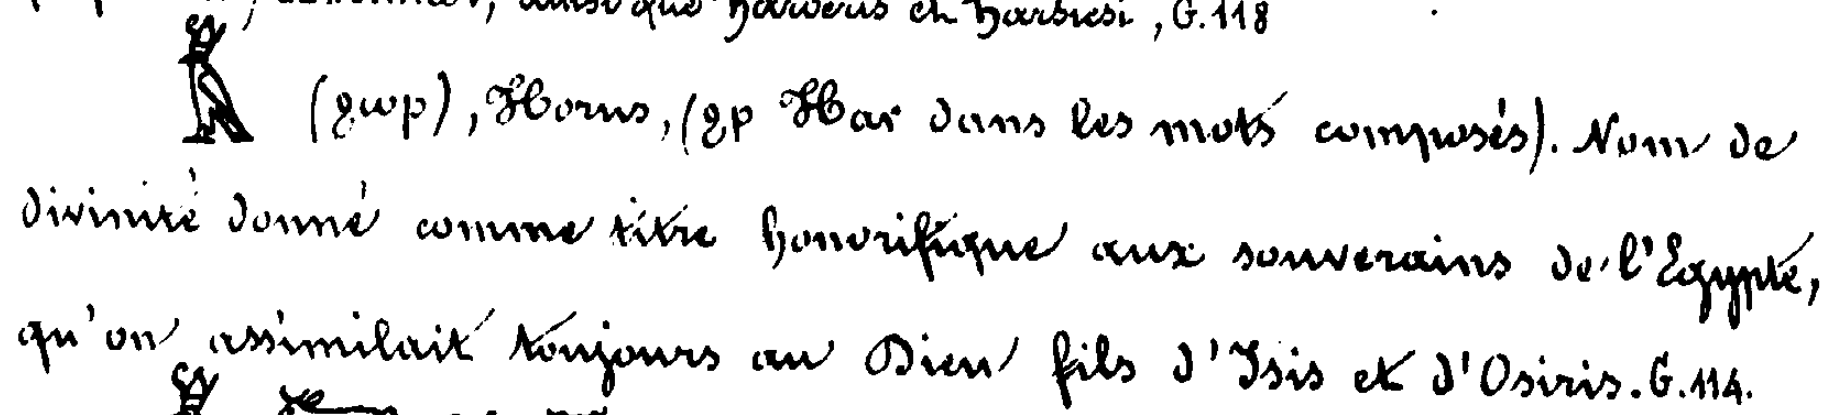 ainsi que Haroëris et Harsiesi, G.118
(ϩⲱⲣ), Horus, (ϩⲣ Har dans les mots composés). Nom de
divinité donné comme titre honorifique aux souverains de l'Egypte,
qu'on assimilait toujours au Dieu fils d'Isis et d'Osiris. G. 114.